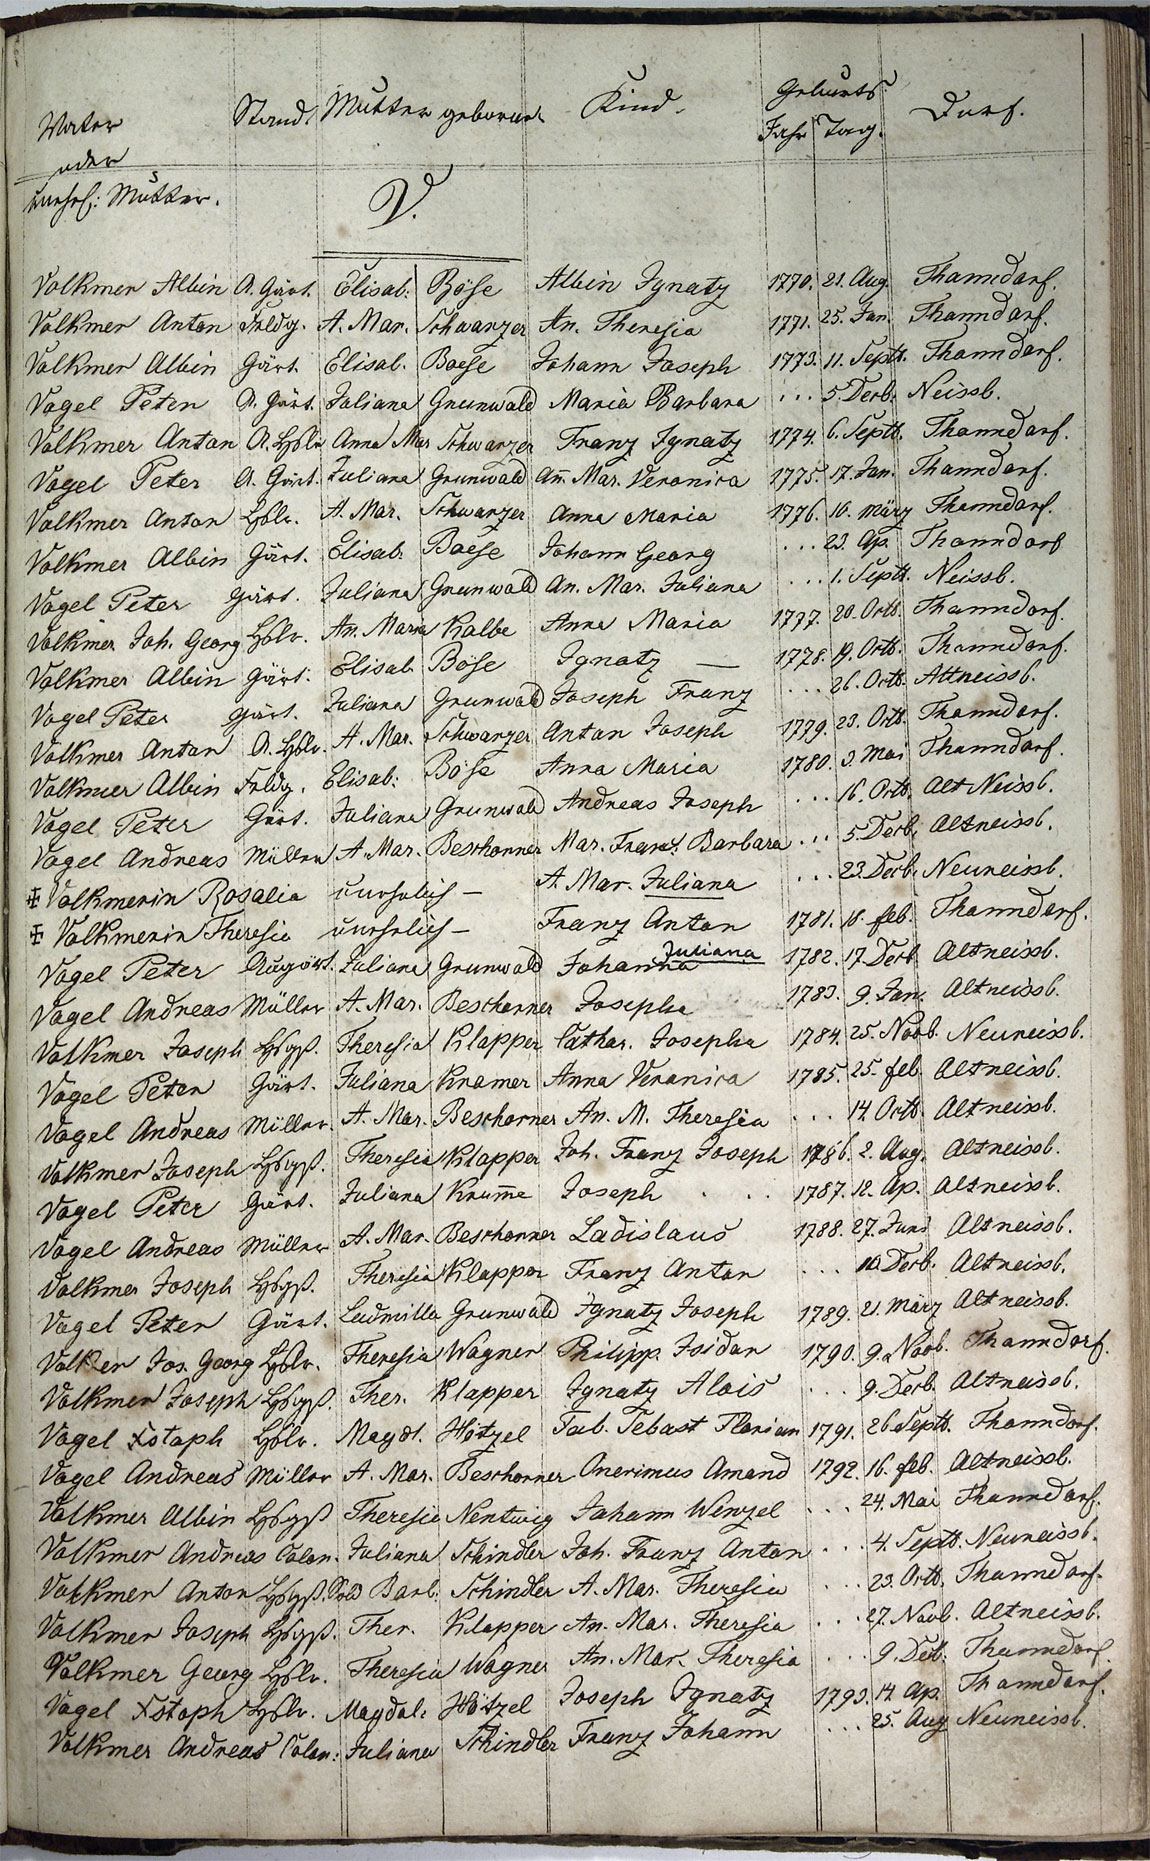 Vater Stand. Mutter geborne Kind. Geburts Dorf.
oder Jahr Tag.
unehel: Mutter.
V.
Volkmer Albin A. Gärt. Elisab: Böse Albin Ignatz 1770. 21. Aug. Thanndorf.
Volkmer Anton Feldg. A. Mar. Schwarzer An. Theresia 1771. 25. Jan. Thanndorf.
Volkmer Albin Gärt. Elisab. Boese Johann Joseph 1773. 11. Septb. Thanndorf.
Vogel Peter A. Gärt. Juliana Grunwald Maria Barbara ... 5. Decb. Neissb.
Volkmer Anton A. Hslr Anna Mar Schwarzer Franz Ignatz 1774. 6. Septb. Thanndorf.
Vogel Peter A. Gärt. Juliana Grunwald An̄. Mar. Veronica 1775. 17. Jan. Thanndorf.
Volkmer Anton Hslr. A. Mar. Schwarzer Anna Maria 1776. 16. März Thanndorf.
Volkmer Albin Gärt. Elisab. Boese Johann Georg ... 23. Ap. Thanndorf
Vogel Peter Gärt. Juliana Grunwald An. Mar. Juliana ... 1. Septb. Neissb.
Volkmer Joh. Georg Hslr. An. Maria Kalbe Anna Maria 1777. 20. Octb. Thanndorf.
Volkmer Albin Gärt. Elisab. Böse Ignatz — 1778. 19. Octb. Thanndorf.
Vogel Peter Gärt. Juliana Grunwald Joseph Franz ... 26. Octb. Altneissb.
Volkmer Anton A. Hslr. A. Mar. Schwarzer Anton Joseph 1779. 23. Octb. Thanndorf.
Volkmer Albin Feldg. Elisab: Böse Anna Maria 1780. 3. Mai Thanndorf.
Vogel Peter Gärt. Juliana Grunwald Andreas Joseph ... 16. Octb. Alt Neissb.
Vogel Andreas Müller A. Mar. Beschorner Mar. Franc. Barbara ... 5. Decb. Altneissb.
✠ Volkmerin Rosalia unehelich – A. Mar. Juliana ... 23. Decb. Neuneissb.
✠ Volkmerin Theresia unehelich – Franz Anton 1781. 18. feb. Thanndorf.
Vogel Peter Augärt. Juliana Grunwald Johanna Juliana 1782. 17. Decb Altneissb.
Vogel Andreas Müller A. Mar. Beschorner Josepha 1783. 9. Jan. Altneissb.
Volkmer Joseph Hsgß. Theresia Klapper Cathar. Josepha 1784. 25. Novb. Neuneissb.
Vogel Peter Gärt. Juliana Kramer Anna Veronica 1785. 25. feb. Altneissb.
Vogel Andreas Müller. A. Mar. Beschorner An. M. Theresia ... 14. Octb. Altneissb.
Volkmer Joseph Hsgß. Theresia Klapper Joh. Franz Joseph 1786. 2. Aug. Altneissb.
Vogel Peter Gärt. Juliana Krum̄e Joseph . . . 1787. 12. Ap. Altneissb.
Vogel Andreas Müller A. Mar. Beschorner Ladislaus 1788. 27. Juni Altneissb.
Volkmer Joseph Hsgß. Theresia Klapper Franz Anton ... 10. Decb. Altneissb.
Vogel Peter Gärt. Ludmilla Grunwald Ignatz Joseph 1789. 21. März Altneissb.
Volker Jos. Georg Hslr. Theresia Wagner Philipp Isidor 1790. 9. Novb. Thanndorf.
Volkmer Joseph Hsgß. Ther. Klapper Ignatz Alois ... 9. Decb. Altneissb.
Vogel Xstoph Hslr. Magdl. Hötzel Fab. Sebast Florian 1791. 26. Septb. Thanndorf.
Vogel Andreas Müller A. Mar. Beschorner Onerimus Amand 1792. 16. feb. Altneissb.
Volkmer Albin Hsgß Theresia Nentwig Johann Wenzel ... 24. Mai Thanndorf.
Volkmer Andreas Colon. Juliana Schindler Joh. Franz Anton ... 4. Septb. Neuneissb.
Volkmer Anton Hsgß. Barb. Schindler A. Mar. Theresia ... 23. Octb. Thanndorf.
Volkmer Joseph Hsgß. Ther. Klapper An. Mar. Theresia ... 27. Novb. Altneissb.
Volkmer Georg Hslr. Theresia Wagner An. Mar. Theresia ... 9. Decb. Thanndorf.
Vogel Xstoph Hslr. Magdal: Hötzel Joseph Ignatz 1793. 14. Ap. Thanndorf.
Volkmer Andreas Colon: Juliana Schindler Franz Johann ... 25. Aug Neuneissb.